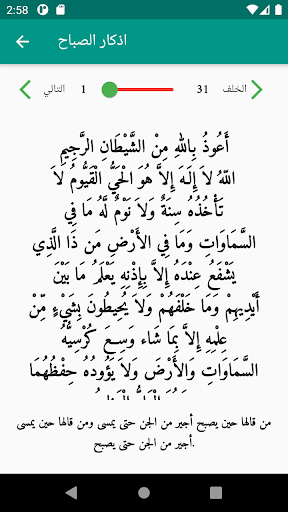 2:58
اذكار الصباح
التالي 1 31 الخلف
أَعُوذُ بِاللهِ مِنْ الشَّيْطَانِ الرَّجِيمِ
اللّهُ لاَ إِلَـهَ إِلاَّ هُوَ الْحَيُّ الْقَيُّومُ لاَ
تَأْخُذُهُ سِنَةٌ وَلاَ نَوْمٌ لَّهُ مَا فِي
السَّمَاوَاتِ وَمَا فِي الأَرْضِ مَن ذَا الَّذِي
يَشْفَعُ عِنْدَهُ إِلاَّ بِإِذْنِهِ يَعْلَمُ مَا بَيْنَ
أَيْدِيهِمْ وَمَا خَلْفَهُمْ وَلاَ يُحِيطُونَ بِشَيْءٍ مِّنْ
عِلْمِهِ إِلاَّ بِمَا شَاء وَسِعَ كُرْسِيُّهُ
السَّمَاوَاتِ وَالأَرْضَ وَلاَ يَؤُودُهُ حِفْظُهُمَا
من قالها حين يصبح أجير من الجن حتى يمسى ومن قالها حين يمسى
أجير من الجن حتى يصبح.